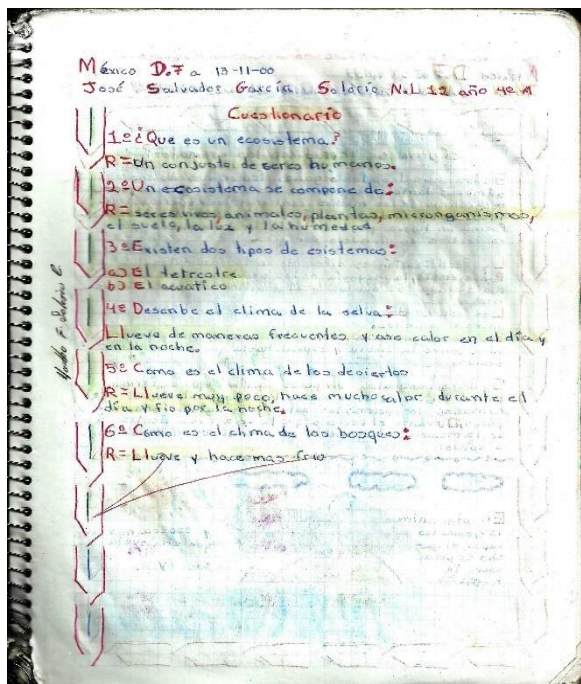 México D.F a 13-11-00
José Salvador García Solorio N.L 12 año 4º A
Cuestionario
1º ¿Que es un ecosistema?
R= Un conjunto de seres humanos.
2º Un ecosistema se compone de:
R= seres vivos, animales, plantas, microrganismos,
el suelo, la luz y la humedad.
3º Existen dos tipos de esistemas:
a) El tetrestre
b) El acuático
4º Describe el clima de la selva:
Llueve de maneras frecuentes y ase calor en el día y
en la noche.
5º Como es el clima de los desiertos
R= Llueve muy poco, hace mucho calor durante el
día y fio por la noche.
6º Como es el clima de los bosques:
R= Llueve y hace mas frio